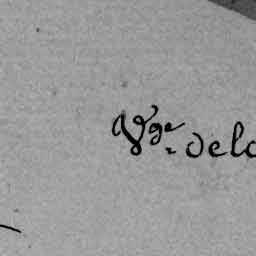 Vge delo